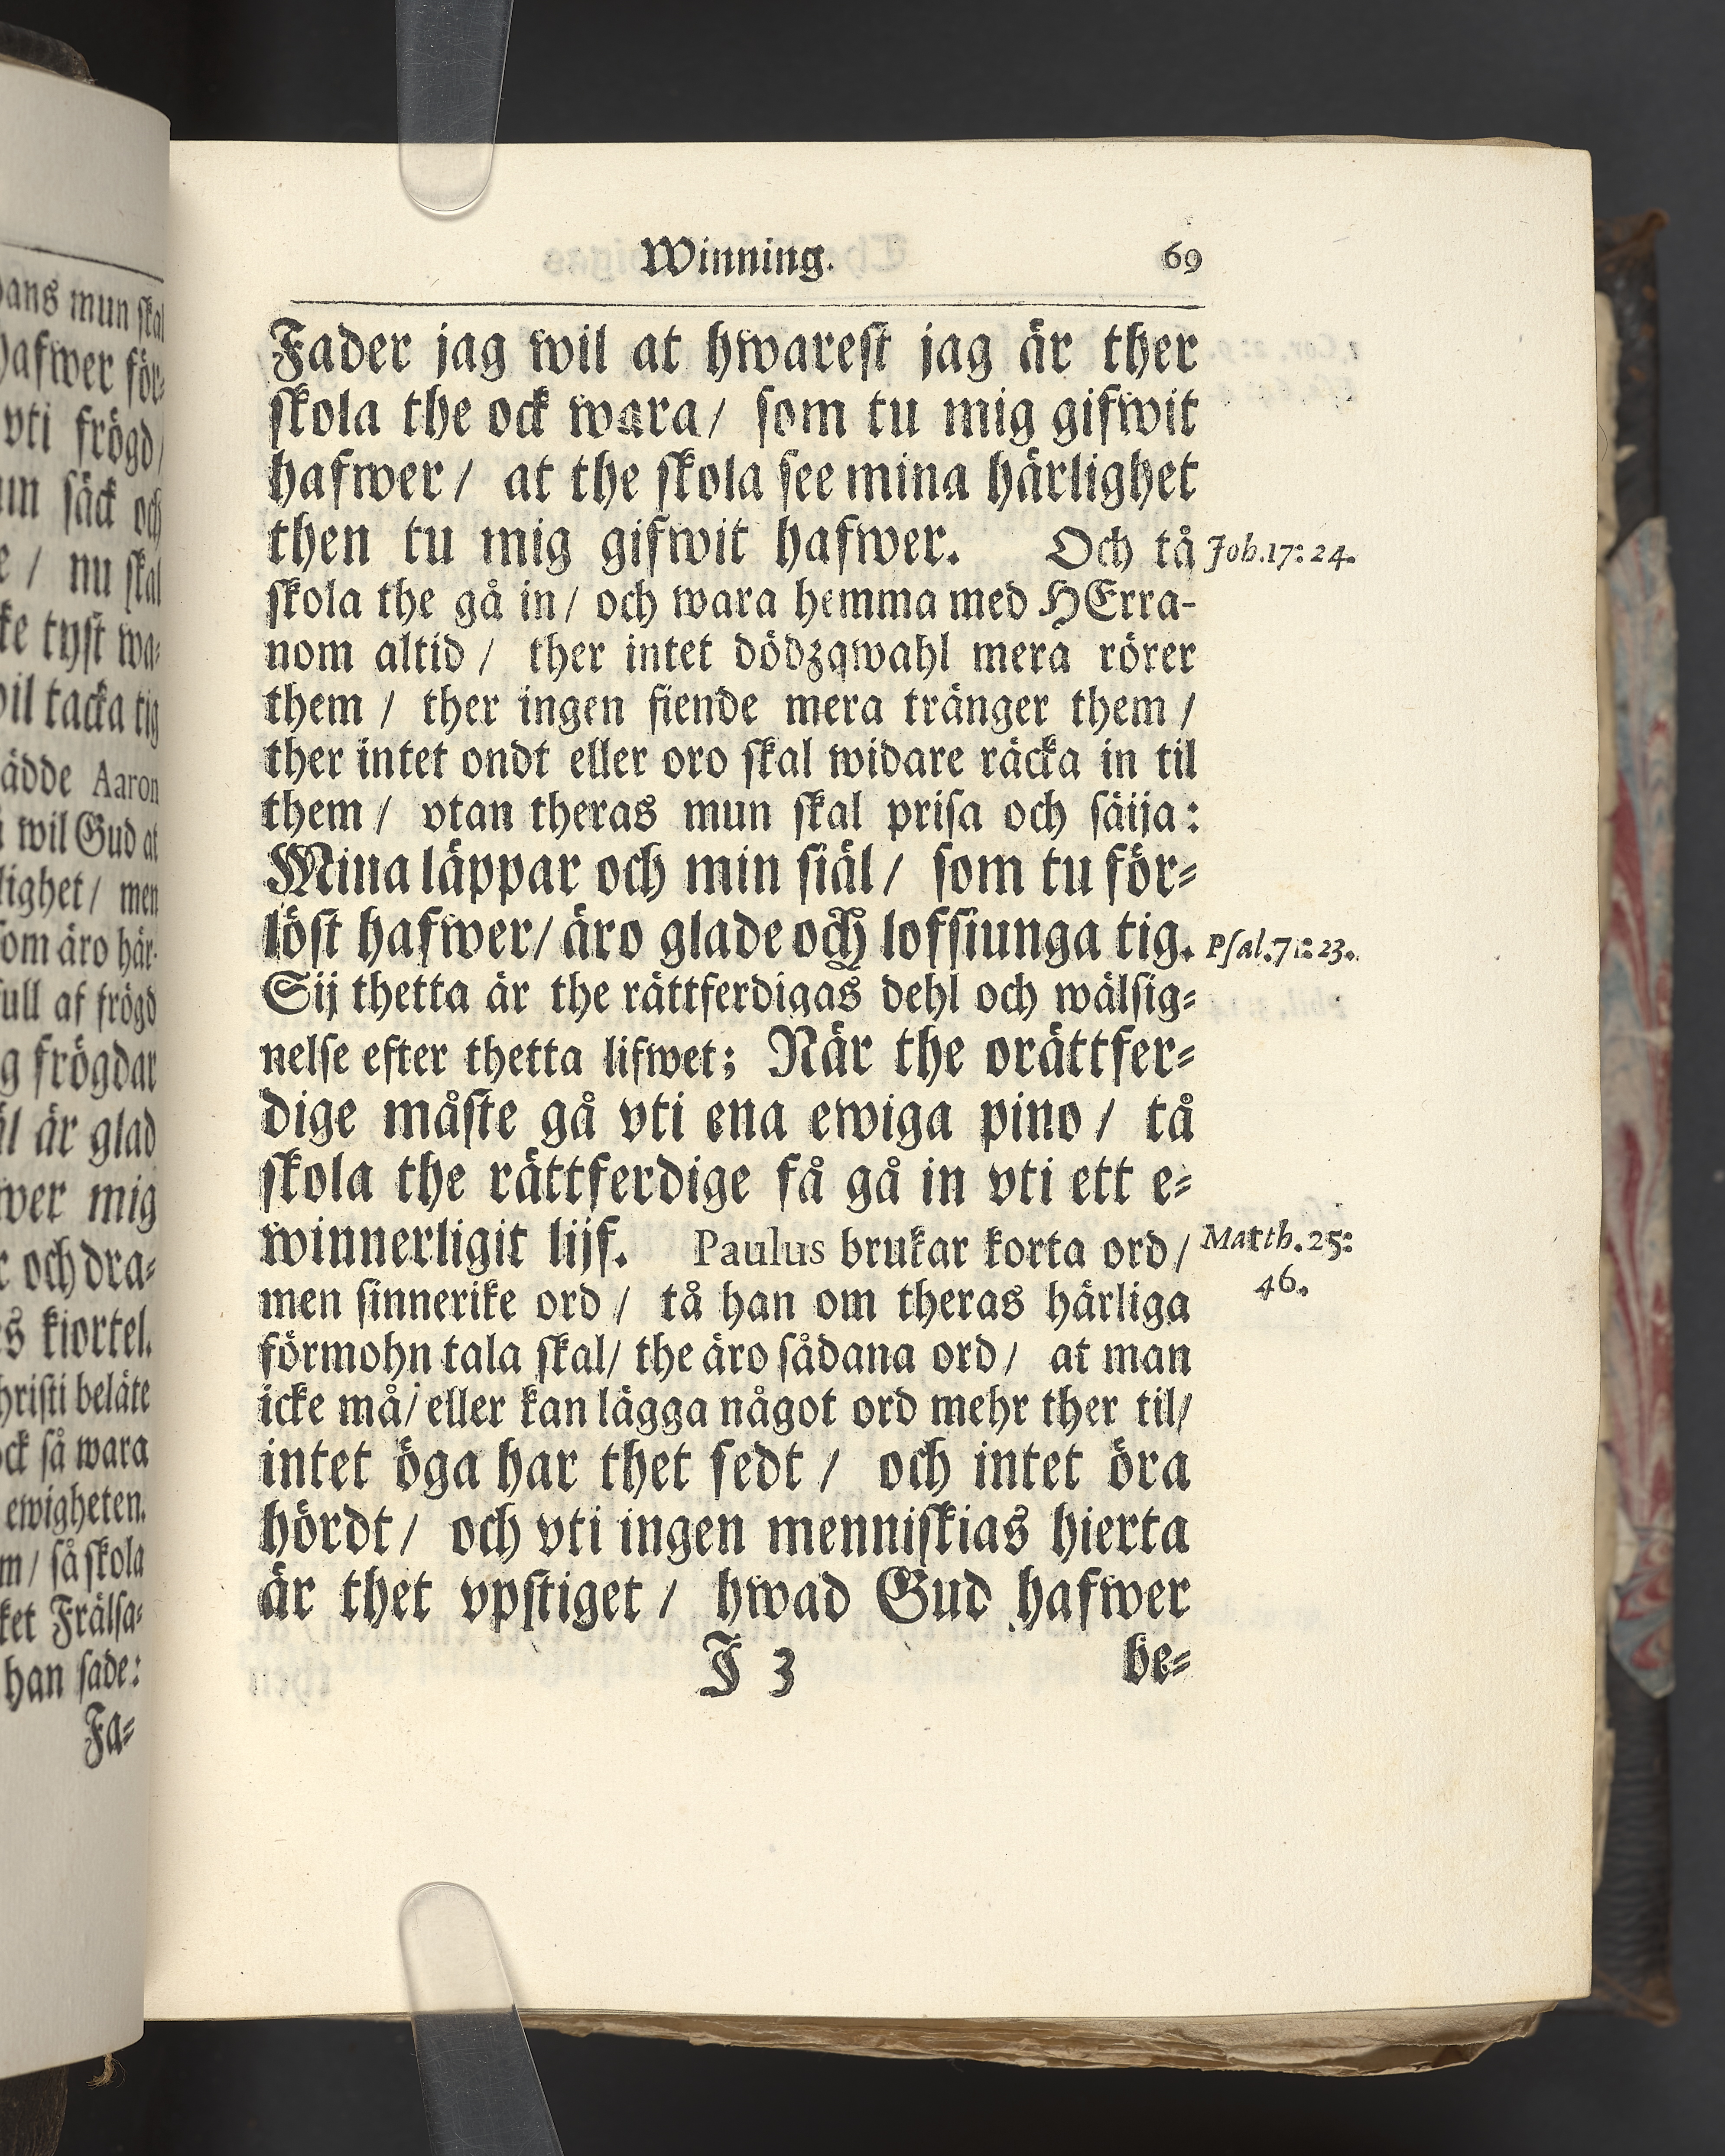 dans mun skal
hafwer för⸗
vti frögd /
säck och
/ nu skal
tyst wa⸗
wil tacka tig
Aaron
wil Gud at
lighet / men
som äro här⸗
full af frögd
frögdar
är glad
mig
och dra⸗
kiortel.
Christi beläte
ock så wara
ewigheten.
/ så skola
Frälsa⸗
han sade:
Fa⸗
Winning. 69
Fader jag wil at hwarest jag är ther
skola the ock wara / som tu mig gifwit
hafwer / at the skola see mina härlighet
then tu mig gifwit hafwer. Och tå Joh. 17: 24.
skola the gå in / och wara hemma med HErra-
nom altid / ther intet dödzqwahl mera rörer
them / ther ingen fiende mera tränger them /
ther intet ondt eller oro skal widare räcka in til
them / vtan theras mun skal prisa och säija:
Mina läppar och min siäl / som tu för⸗
löst hafwer / äro glade och lofsiunga tig. Psal. 71: 23.
Sij thetta är the rättferdigas dehl och wälsig⸗
nelse efter thetta lifwet; När the orättfer⸗
dige måste gå vti ena ewiga pino / tå
skola the rättferdige få gå in vti ett e⸗
winnerligit lijf. Paulus brukar korta ord / Matth. 25:
46.
men sinnerike ord / tå han om theras härliga
förmohn tala skal / the äro sådana ord / at man
icke må / eller kan lägga något ord mehr ther til /
intet öga har thet sedt / och intet öra
hördt / och vti ingen menniskias hierta
är thet vpstiget / hwad Gud hafwer
J 3 be⸗